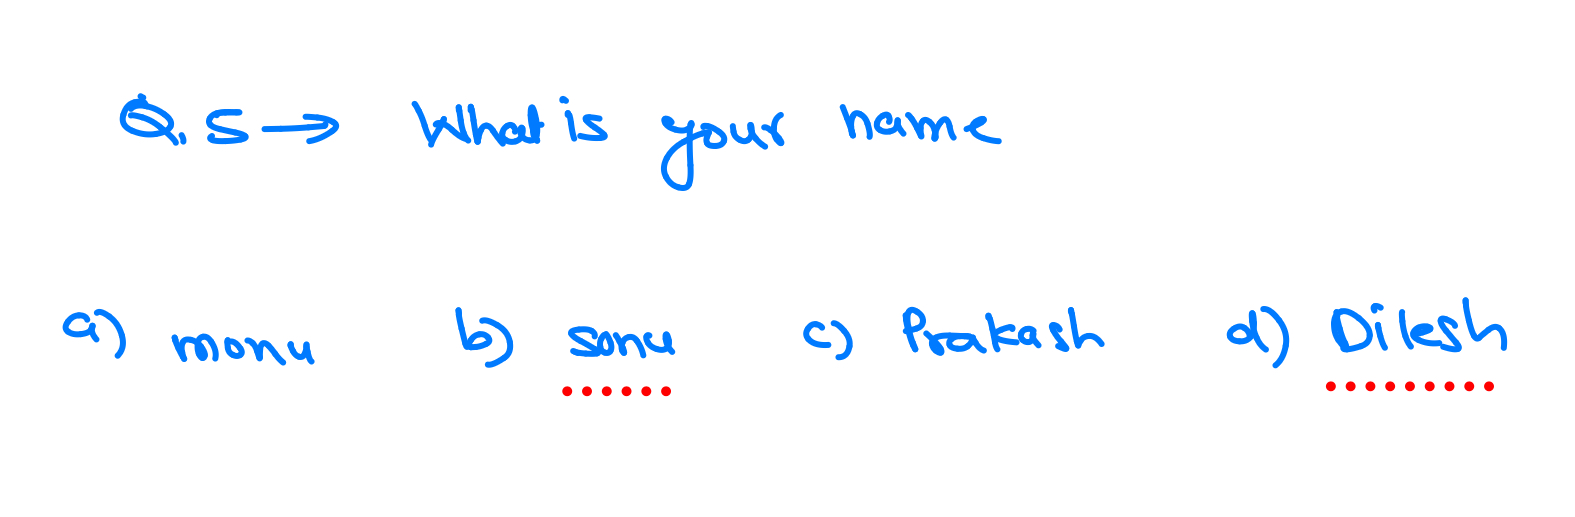 Q.5→ What is your name
a) monu b) sonu c) Prakash d) Dilesh